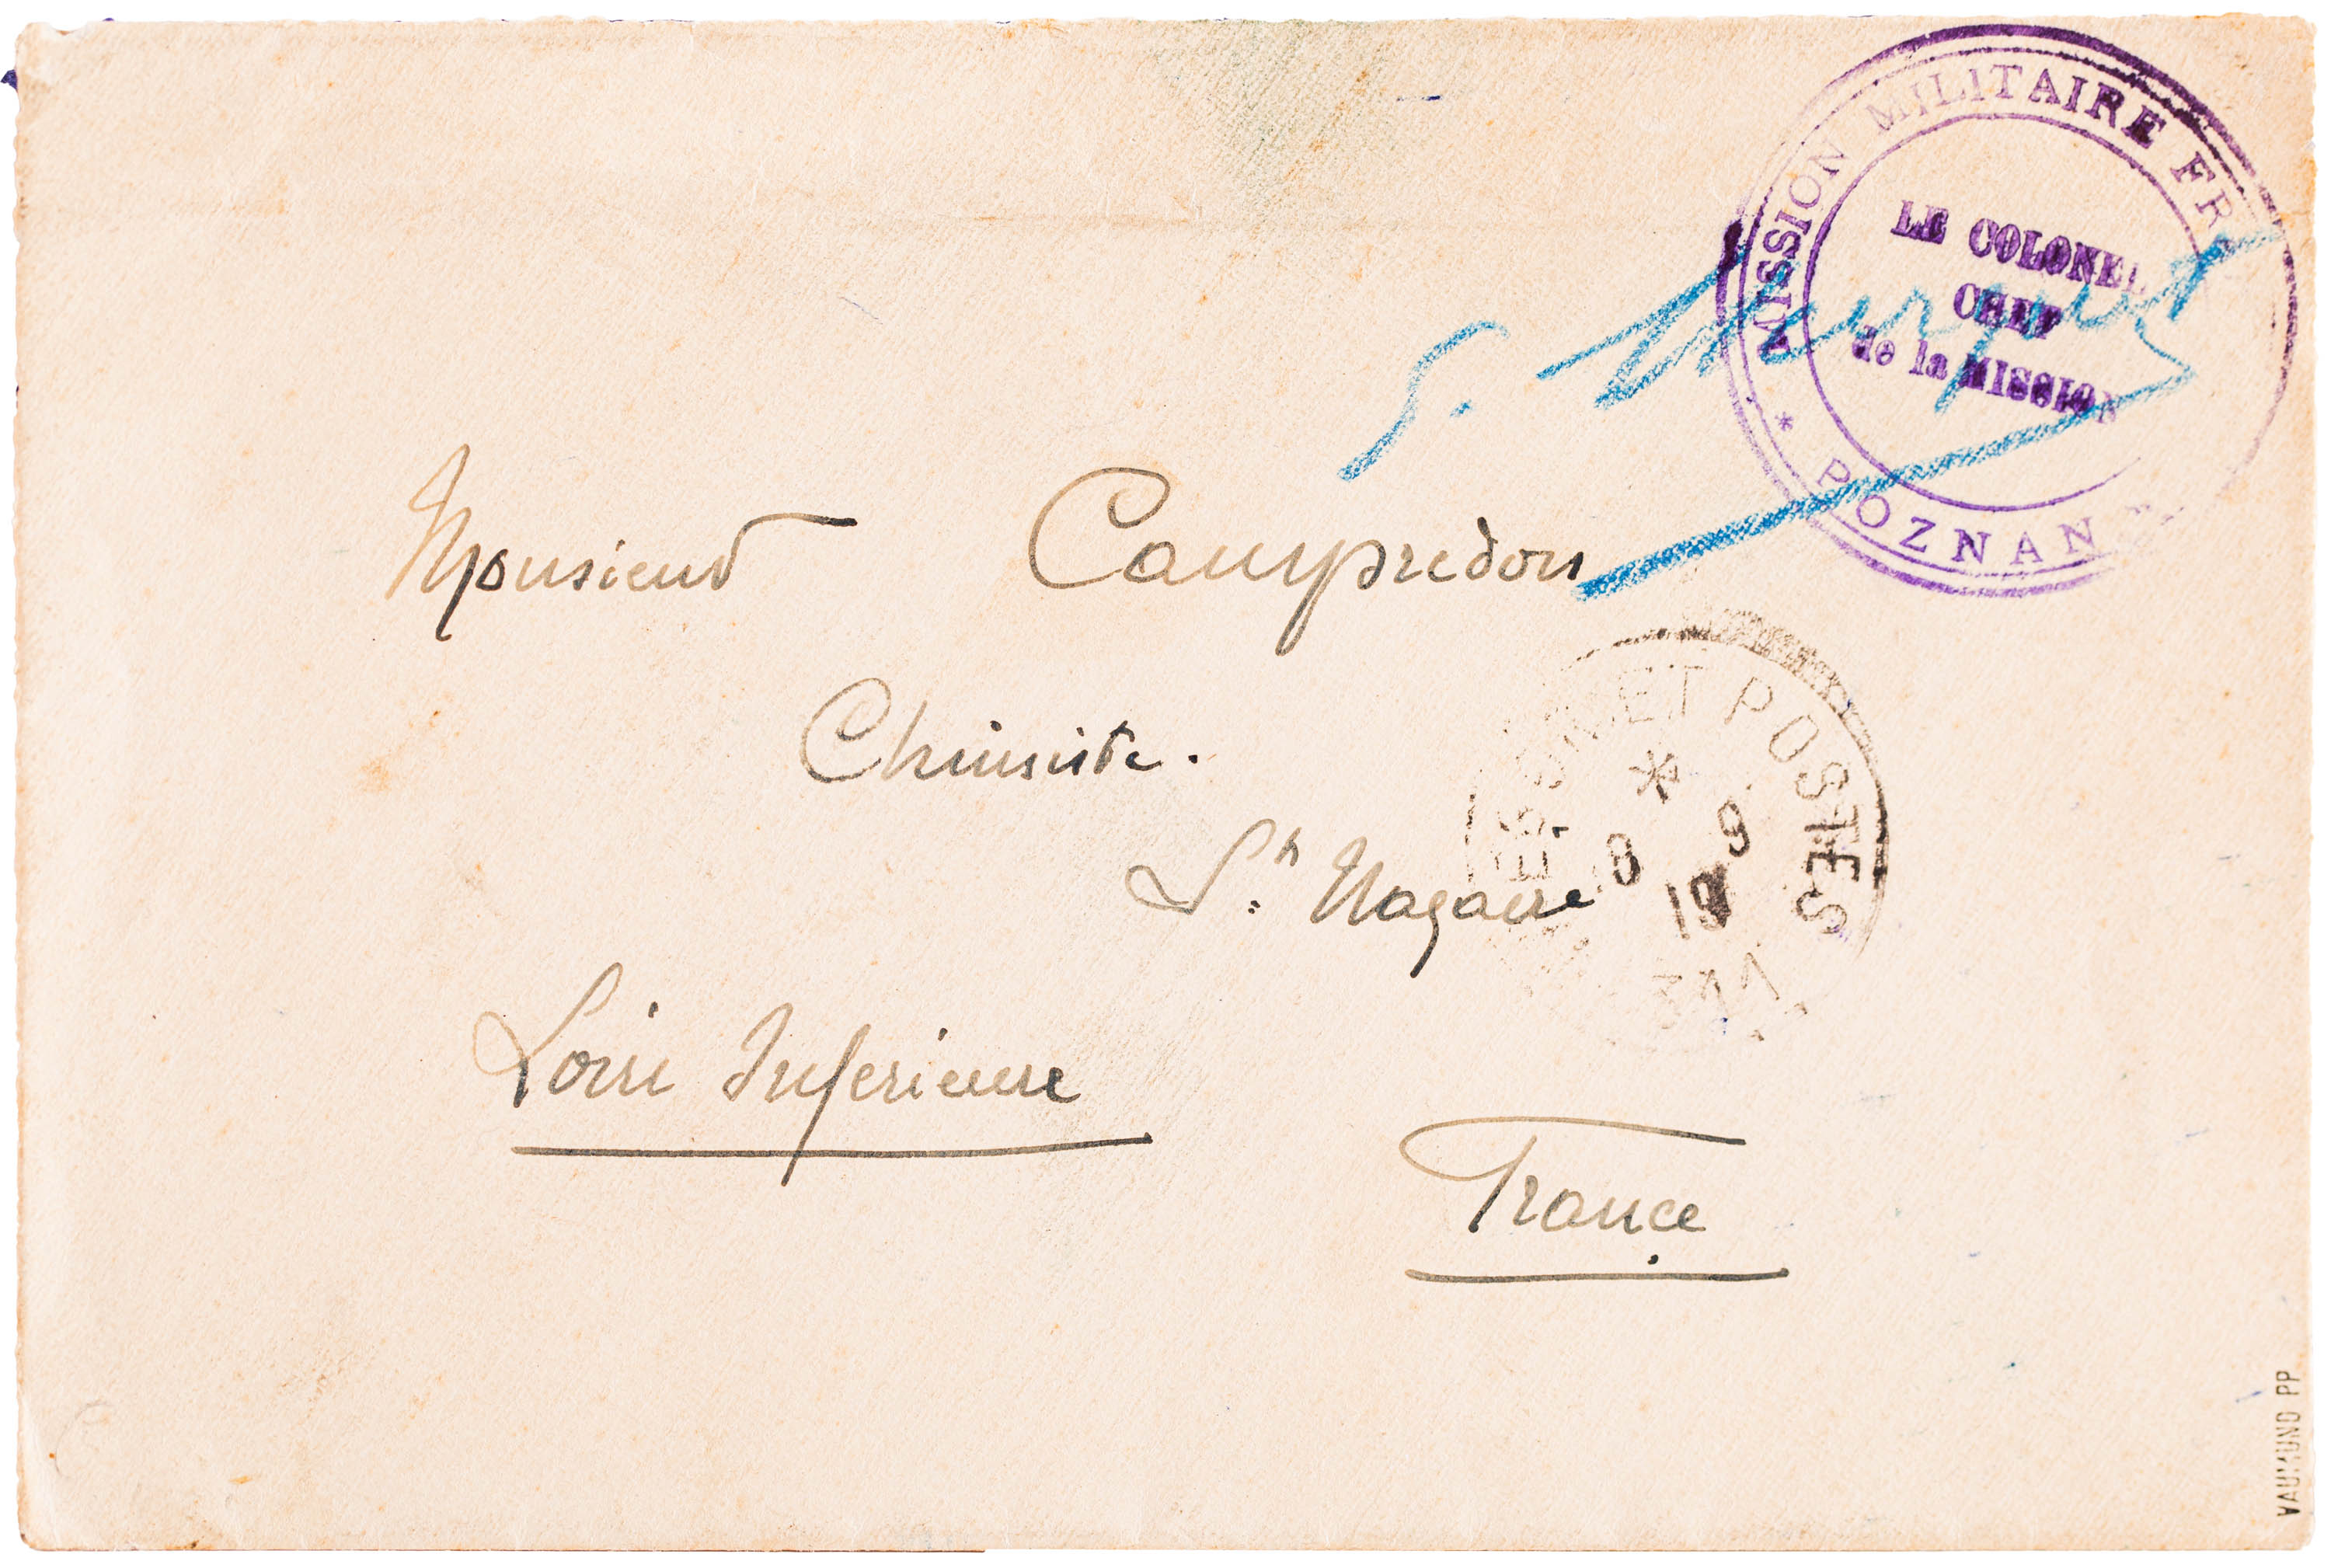 MISSION MILITAIRE FR
LE COLONEL
CHEF
de la MISSION
* POZNAN
Monsieur Campredon
Chimiste.
St. Nazaire
Loire Inferieure
France
ET POSTES
*
8 9
19